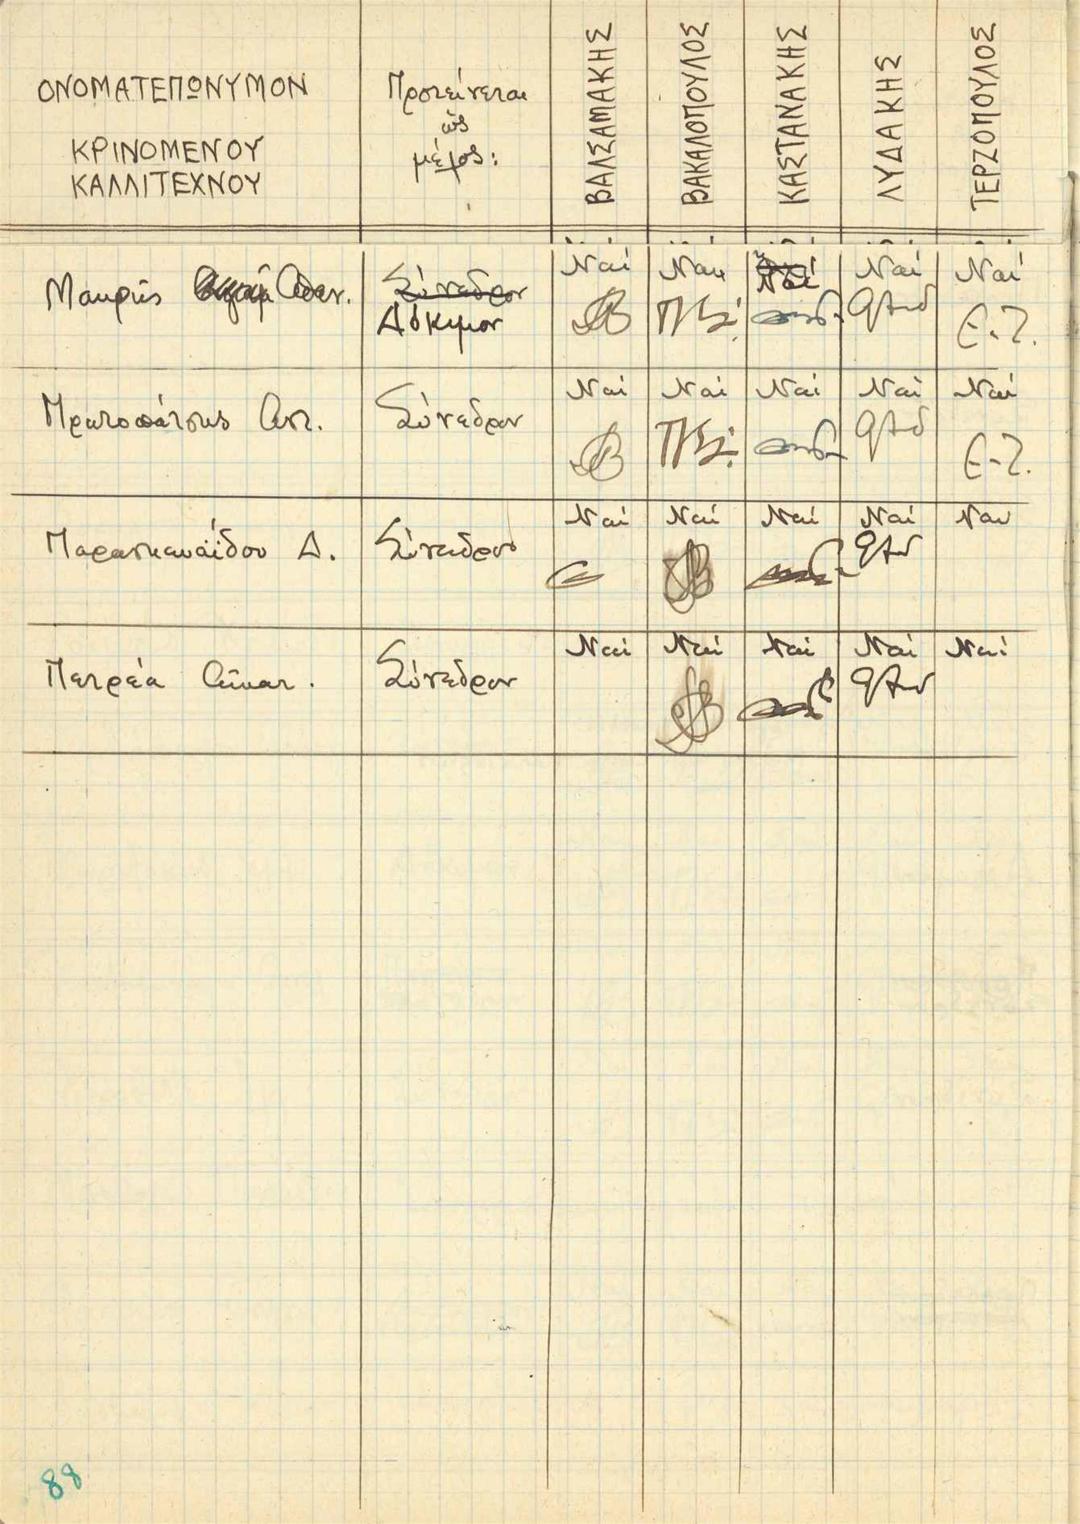 ΟΝΟΜΑΤΕΠΩΝΥΜΟΝ
ΚΡΙΝΟΜΕΝΟΥ
ΚΑΛΛΙΤΕΧΝΟΥ
Προτείνεται
ὡς
μέλος:
ΒΑΛΣΑΜΑΚΗΣ
ΒΑΚΑΛΟΠΟΥΛΟΣ
ΚΑΣΤΑΝΑΚΗΣ
ΛΥΔΑΚΗΣ
ΤΕΡΖΟΠΟΥΛΟΣ
Μακρῆς Αθαν. Σύνεδρον Ναί Ναι Ναί Ναί Ναί
Δόκιμον Ε.Τ.
Πρωτοπάτσης Αντ. Σύνεδρον Ναί Ναί Ναί Ναί Ναί
Ε.Τ.
Παρασκευαΐδου Δ. Σύνεδρον Ναί Ναί Ναί Ναί Ναι
Πετρέα Αἰκατ. Σύνεδρον Ναί Ναί Ναί Ναί Ναί
88